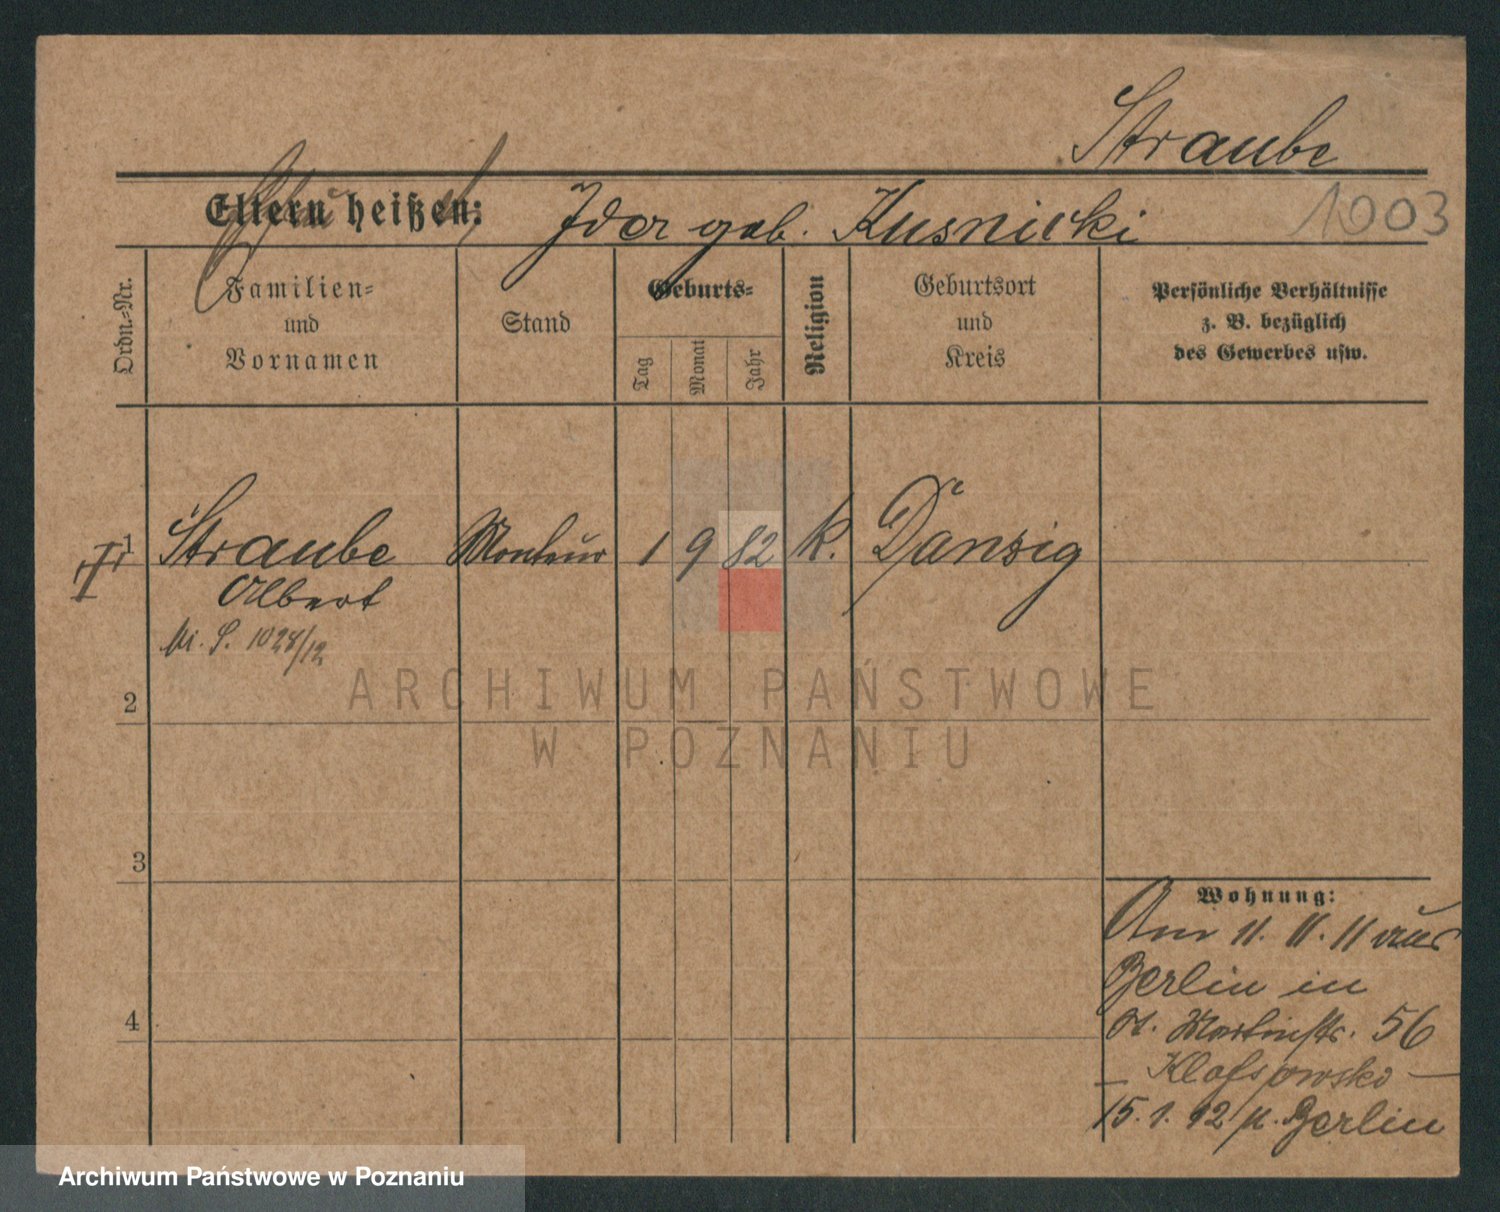 Straube
Eltern heißen:
Ida geb. Kusnicki
1003
Ordn.=Nr.
Familien=
und
Vornamen
Stand
Geburts=
Tag
Monat
Jahr
Religion
Geburtsort
und
Kreis
Persönliche Verhältnisse
z. B. bezüglich
des Gewerbes usw.
1
Straube
Albert
Monteur
1
9
82
k.
Danzig
1028/12
2
3
4
ARCHIWUM PAŃSTWOWE
W POZNANIU
Wohnung:
Am 11. 11. 11 aus
Berlin in
St. Martinstr. 56
15. 1. 12 n. Berlin
Archiwum Państwowe w Poznaniu